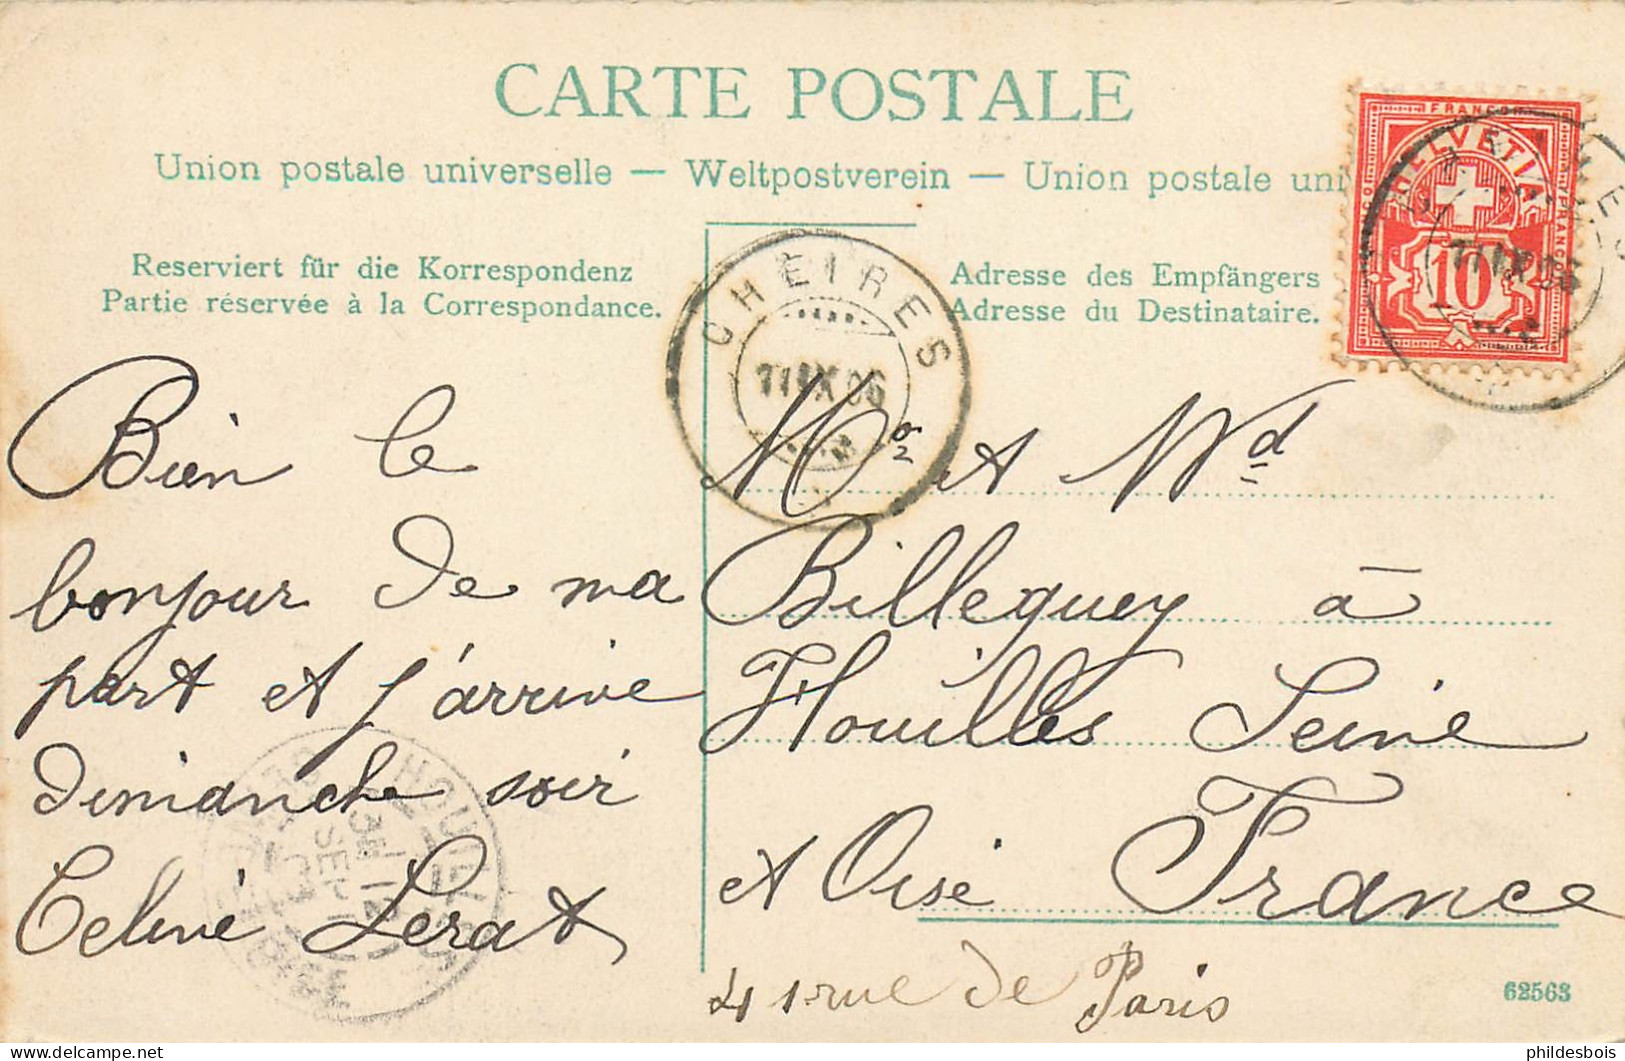 CARTE POSTALE
Union postale universelle — Weltpostverein — Union postale uni
Reserviert für die Korrespondenz
Partie réservée à la Correspondance.
Adresse des Empfängers
Adresse du Destinataire.
FRANCO
HELVETIA
FRANCO
10
CHEIRES
IX 06
Bien le
bonjour de ma
part et j'arrive
dimanche soir
Celine Lerat
HOUILLES
SEPT
Mr et Md
Billeguey à
Houilles Seine
et Oise France
41 rue de Paris
62563
phildesbois